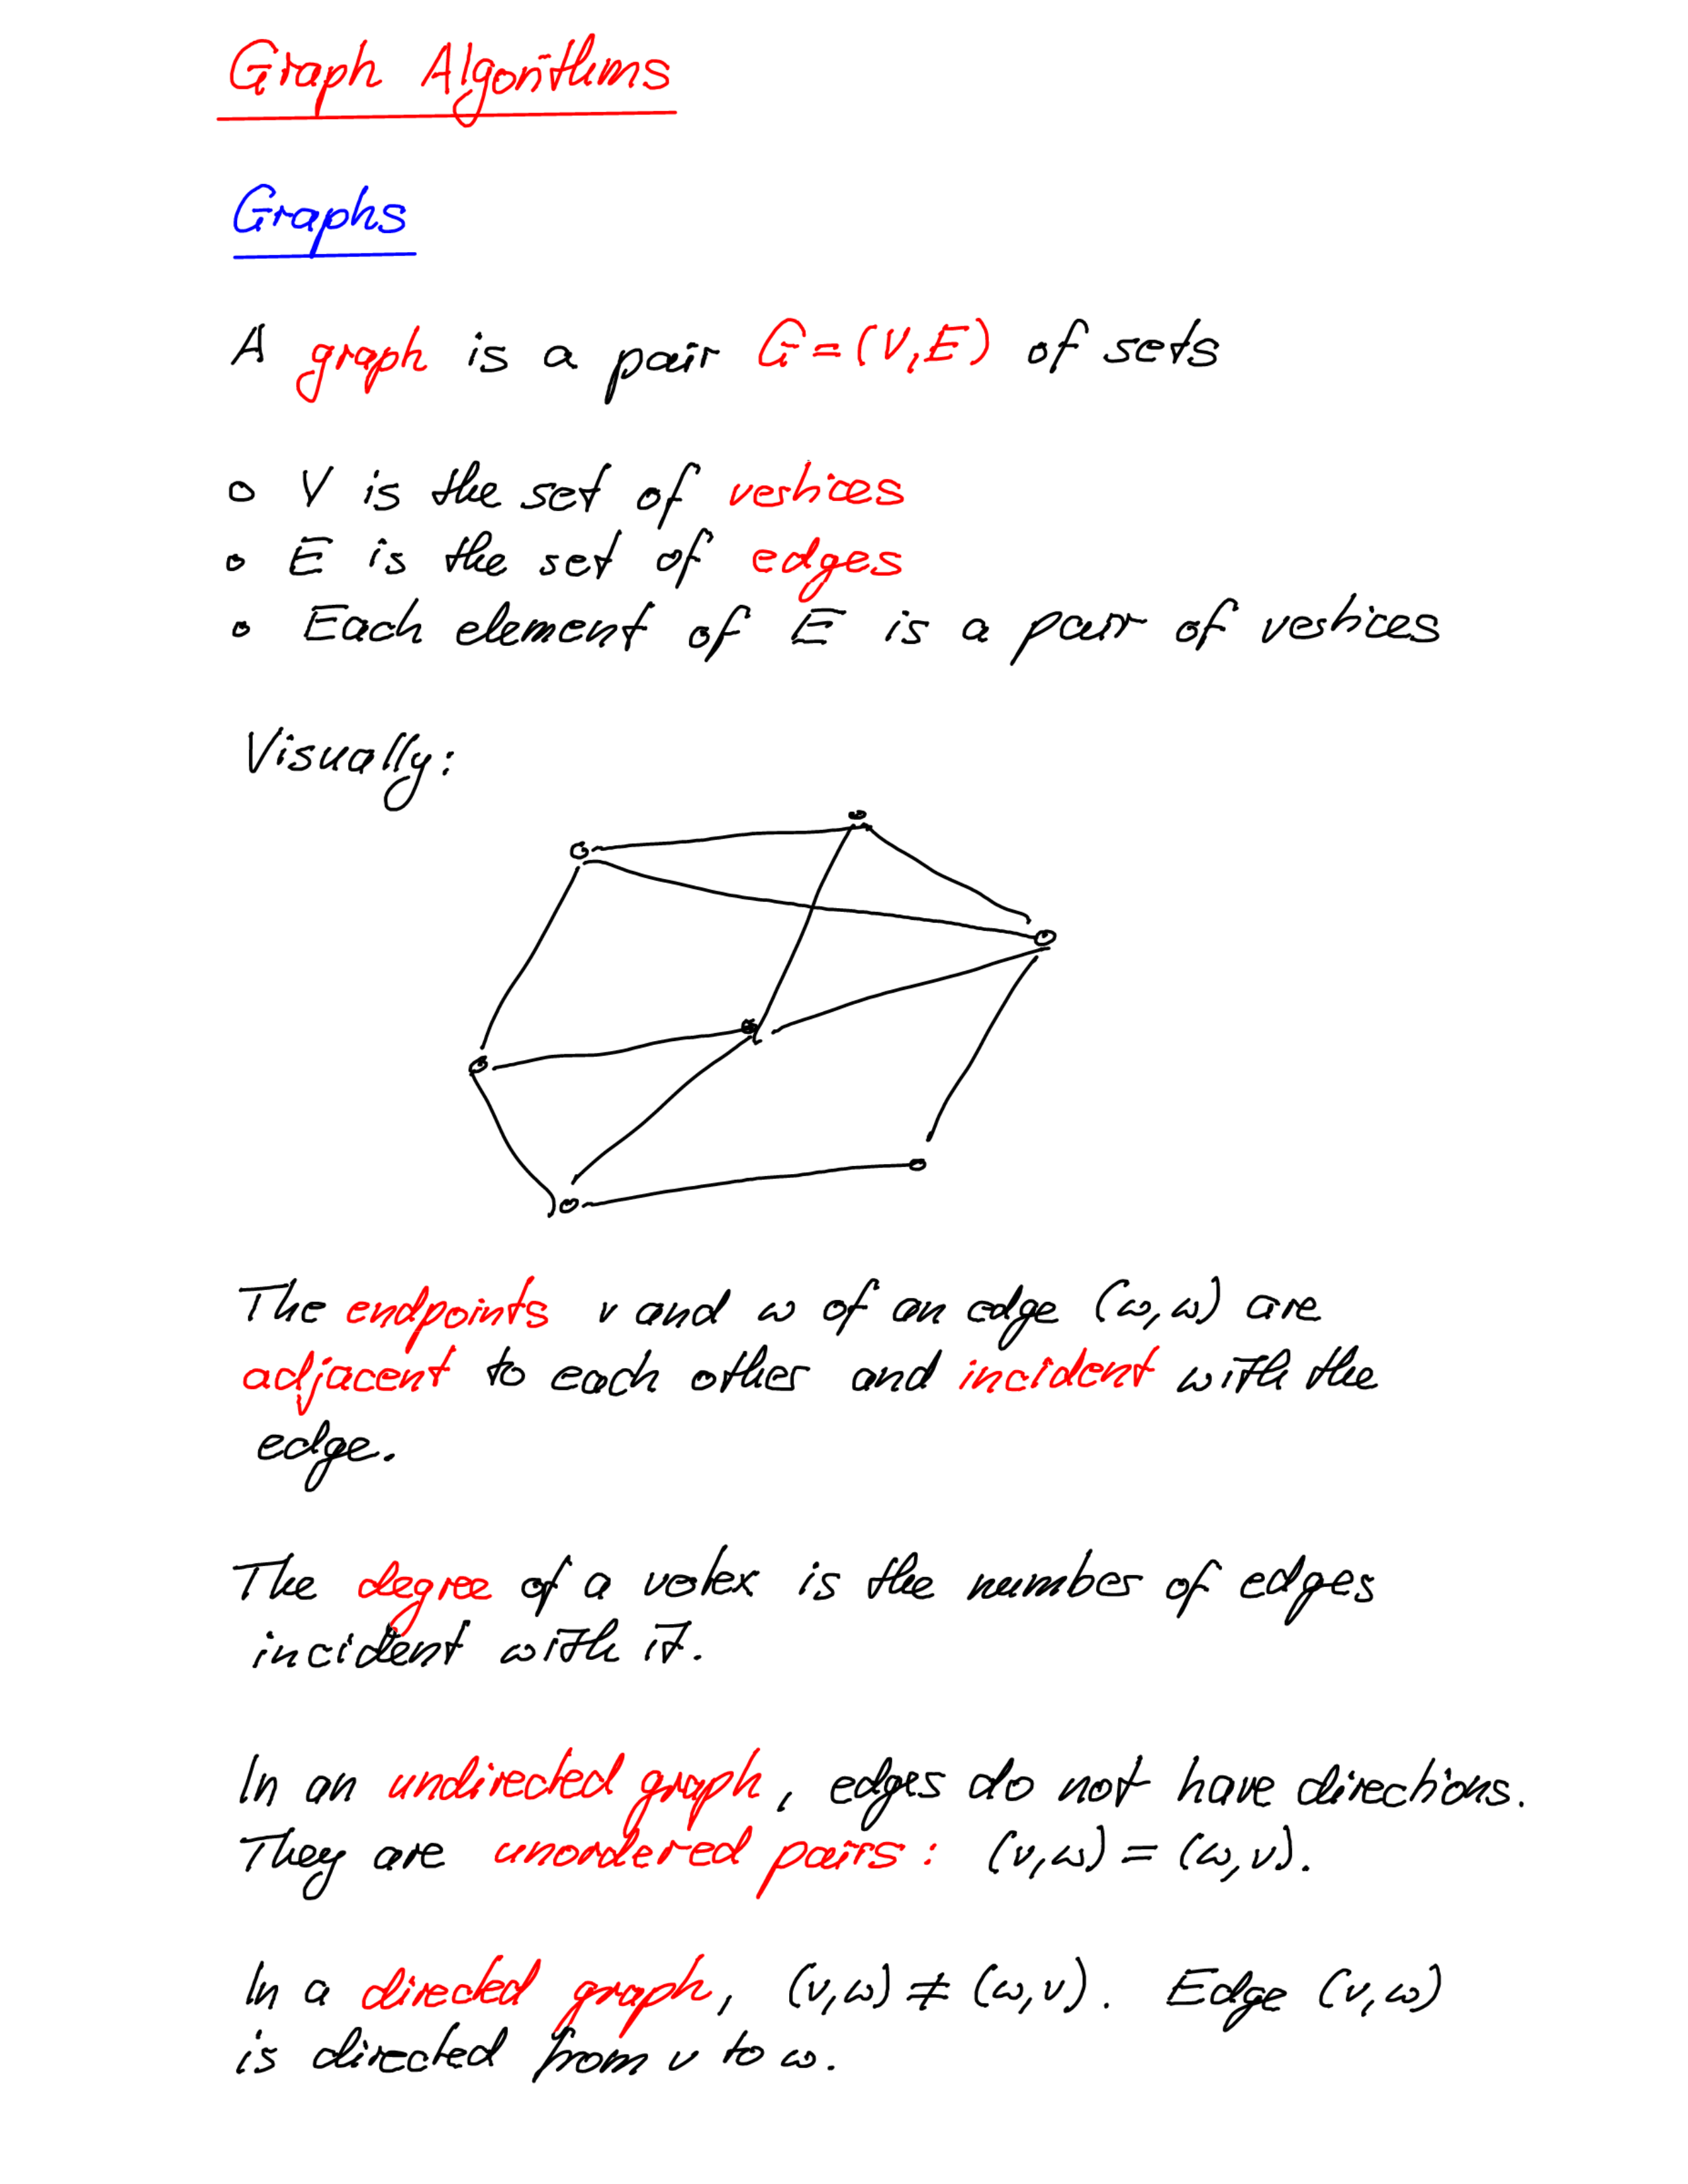 Graph Algorithms
Graphs
A graph is a pair G=(V,E) of sets
o V is the set of vertices
o E is the set of edges
o Each element of E is a pair of vertices
Visually:
The endpoints v and w of an edge (w,w) are
adjacent to each other and incident with the
edge.
The degree of a vertex is the number of edges
incident with it.
In an undirected graph, edges do not have directions.
They are unordered pairs: (v,w) = (w,v).
In a directed graph, (v,w) ≠ (w,v). Edge (v,w)
is directed from v to w.